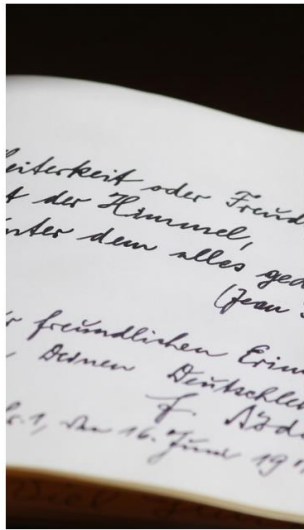 eiterkeit oder Freud
t der Himmel,
unter dem alles ged
(Jean
r freundlichen Erinn
Deinen Deutschle
F.
1, den 16. Juni 19